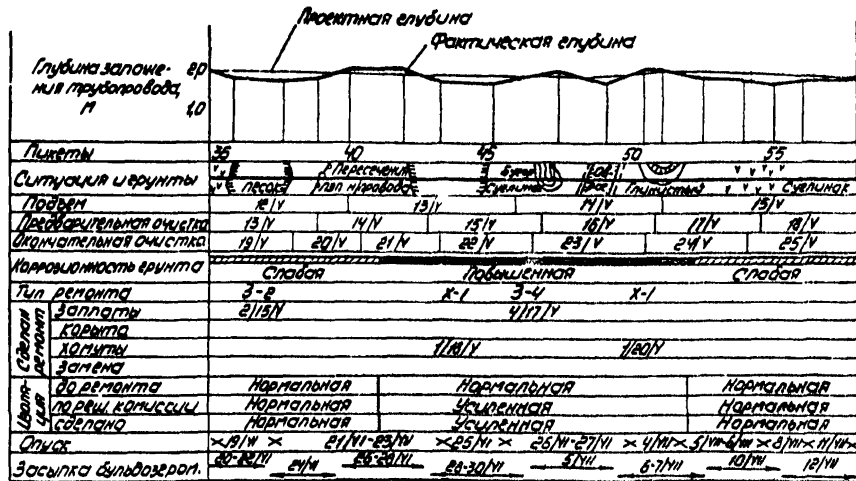 Проектная глубина
Фактическая глубина
Глубина заложе-
ния трубопровода,
м
2,0
1,0
Пикеты 35 40 45 50 55
Ситуация и грунты песок Пересечения Бугор Суглинок Глинистый Суглинок
Подъем 12/V 13/V 14/V 15/V
Предварительная очистка 13/V 14/V 15/V 16/V 17/V 18/V
Окончательная очистка 19/V 20/V 21/V 22/V 23/V 24/V 25/V
Коррозионность грунта Слабая Повышенная Слабая
Тип ремонта З-2 Х-1 З-4 Х-1
Сделан ремонт
Заплаты 2/15/V 4/17/V
корыта
хомуты 1/18/V 1/20/V
Замена
Изоля-
ция
до ремонта Нормальная Нормальная Нормальная
по реш. комиссии Нормальная Усиленная Нормальная
сделано Нормальная Усиленная Нормальная
Опуск 19/VI 21/VI-23/VI 25/VI 26/VI-27/VI 4/VII 5/VII-6/VII 8/VII 11/VII
Засыпка бульдозером. 20-22/VI 24/VI 26-28/VI 28-30/VI 5/VII 6-7/VII 10/VII 12/VII